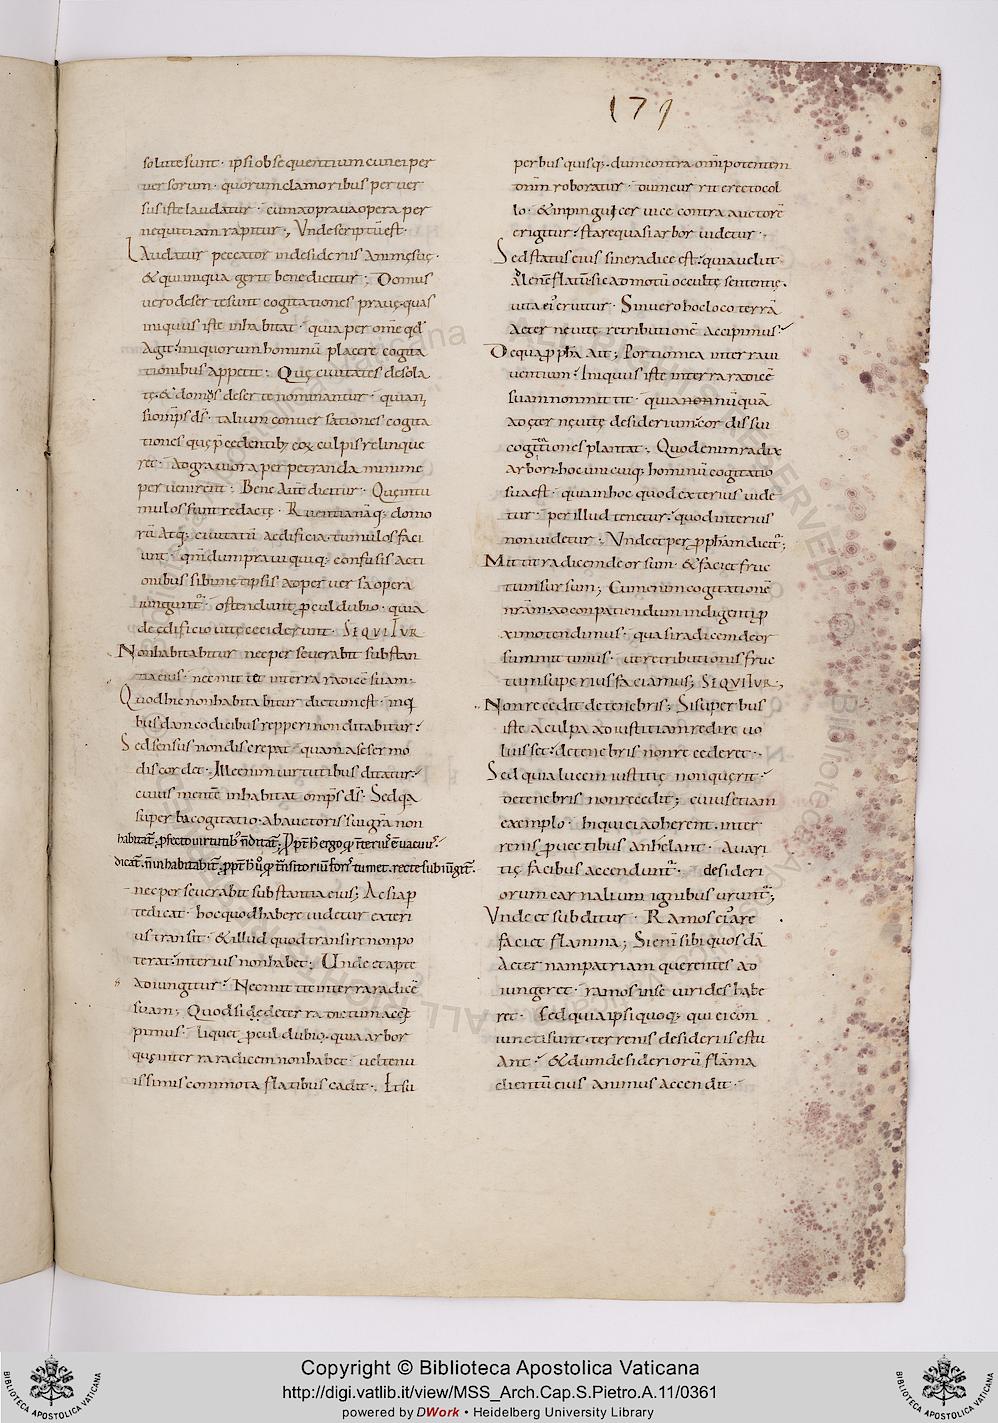 179
solute sunt · ipsi obsequentium cunei per
uersorum · quorum clamoribus peruer
sus iste laudatur · cum ad praua opera per
nequitiam rapitur ·, Unde scriptũ est ·
Laudatur peccator in desideriis animę suę ·
& qui iniqua gerit benedicitur ; Domus
uero desertę sunt cogitationes prauę · quas
iniquus iste inhabitat · quia per omne qđ
agit · iniquorum hominũ placere cogita
tionibus appetit · Quę ciuitates desola
tę · & dom&#x9;us desertę nominantur · quia n
si omps dš · talium conuersationes cogita
tiones quę p̄cedentib; eox culpis relinque
ret · Ad grauiora perpetranda minime
peruenirent · Bene aut̃ dicitur · Quę in tu
mulos sunt redactę · Ruentia nãq; domo
rũ atq; ciuitatũ aedificia · tumulos faci
unt · qm̃ dum praui quiq; confusis acti
onibus sibimetipsis ad peruersa opera
iungunt̃ · ostendunt p̱cul dubio · quia
de edificio uitę ceciderunt · SEQUITUR
Non habitabitur nec perseuerabit substan
tia eius · nec mittet in terra radicẽ suam ·
Quod hic non habitabitur dictum est · in q
busdam codicibus repperi non ditabitur ·
Sed sensus non discrepat · quamuis a sermo
discordet · Illeenim uirtutibus ditatur ·
cuius mentẽ inhabitat omps dš · Sed qa
superba cogitatio · ab auctoris sui gra non
habitat̃ · p̱fecto uirtutib; ñ ditat̃ ; Qđ ppt̃ h̃ ergo q ñ terius ẽ uacuus
dicat̃ · ñ inhabitabit̃ · ppt̃ h̃ u̾o q trãsitorium foris̃ tumet · recte subiũgit̃ ·
nec perseuerabit substantia eius ; Ac si ap̱
te dicat · hoc quod habere uidetur exteri
us transit · & illud quod transire non po
terat · interius non habet ; Unde et apte
adiungitur · Nec mittit in terra radicẽ
suam ; Quod si de detterra dictum acci
pimus · liquet p̱cul dubio · quia arbor
quę in terra radicem non habet · uel tenu
issimis commota flatibus cadit · Et su
perbus quisq; · dum contra omipotentem
dnm roboratur · dum currit erecto col
lo · & in pingui ceruice contra auctorẽ
erigitur · stare quasi arbor uidetur ·
Sed status eius sine radice est · quia uelut
ad lenẽ flatũ · sic ad motũ occultę sententię ·
uita ei̾ eruitur · Sin uero hoc loco terrã
aeternę uitę retributionẽ accipimus ·
De qua p̱ p̱pha ait ; Portio mea in terra uiu
uentium · Iniquus iste in terra radicẽ
suam non mittit · quia non nũquã
ad ęternę uitę desiderium cor dis sui
cogitationes plantat ·, Quod enim radix
arbori · hoc unicuiq; hominũ cogitatio
sua est · quia in hoc quod exterius uide
tur · per illud tenetur · quod interius
non uidetur · Unde et per p̱phã dicit̃ ;
Mittit radicem deorsum · & faciet fruc
tum sursum ; Cum enim cogitationẽ
nrãm · ad conpatiendum indigenti p̱
ximo tendimus · quasi radicem deor
sum mittimus · ut retributionis fruc
tum superius faciamus ; SEQUITUR ·,
Non recedit de tenebris ; Si superbus
iste a culpa ad iustitiam redire uo
luisset · de tenebris non recederet ·
Sed quia lucem iustitię non quęrit ·
De tenebris non recedit ; cuius etiam
exemplo · hi qui ei adherent · inter
renis p̱uectibus anhelant · Auari
tię facibus accendunt̃ · desideri
orum carnalium ignibus urunt̃ ;
Unde et subditur · Ramos ei̾ are
faciet flamma ; Si enĩ sibi quosdã
aeternam patriam querentes ad
iungeret · ramos in se uirides habe
ret · Sed quia ipsi quoq; qui ei con
iuncti sunt · terrenis desideriis estu
ant · & dum desideriorũ flãma
clientũ eius animus accendit ·
Copyright © Biblioteca Apostolica Vaticana
http://digi.vatlib.it/view/MSS_Arch.Cap.S.Pietro.A.11/0361
powered by DWork • Heidelberg University Library